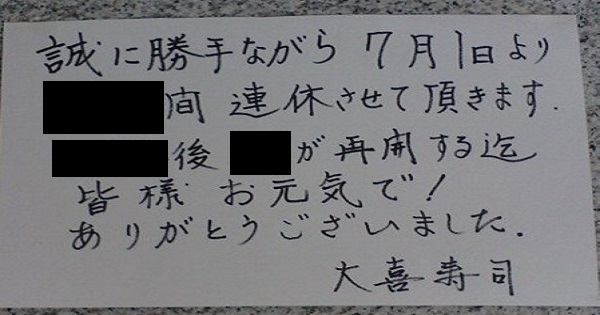 誠に勝手ながら 7月1日より
間 連休させて頂きます.
後 が再開する迄
皆様 お元気で!
ありがとうございました.
大喜寿司